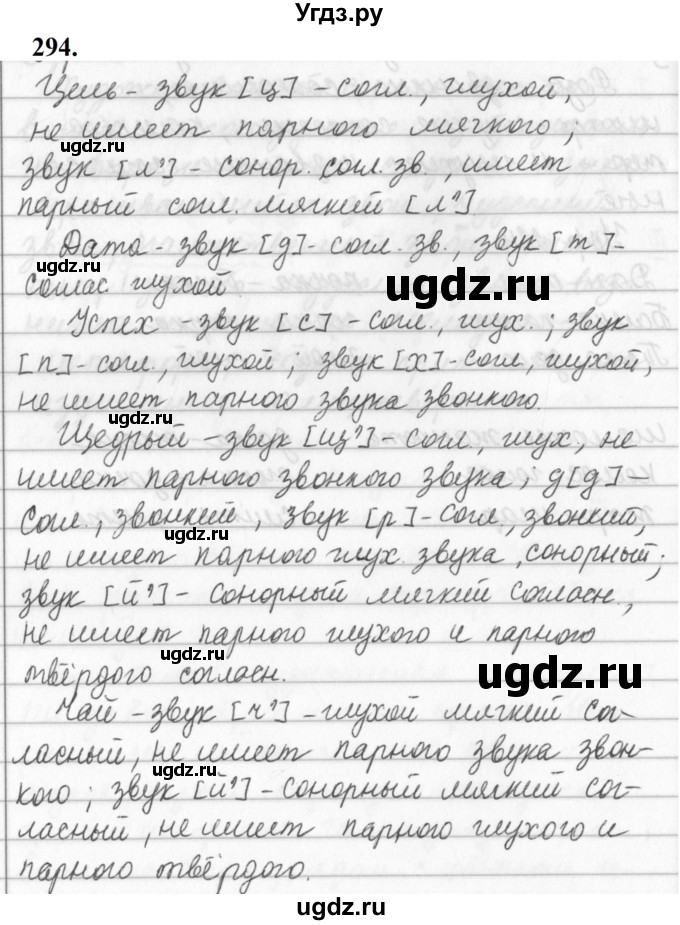 Угдз.ру
294.
Цель - звук [ц] - согл., глухой,
не имеет парного мягкого;
звук [л'] - сонор. согл. зв., имеет
парный согл. мягкий [л']
Дата - звук [д] - согл. зв., звук [т] -
соглас глухой.
Успех - звук [с] - согл., глух.; звук
[п] - согл., глухой; звук [х] - согл, глухой,
не имеет парного звука звонкого.
Щедрый - звук [щ'] - согл., глух, не
имеет парного звонкого звука; д[д] -
согл., звонкий, звук [р] - согл, звонкий,
не имеет парного глух. звука, сонорный;
звук [й'] - сонорный мягкий согласн.,
не имеет парного глухого и парного
твёрдого согласн.
Чай - звук [ч'] - глухой мягкий со-
гласный, не имеет парного звука звон-
кого; звук [й'] - сонорный мягкий сог-
ласный, не имеет парного глухого и
парного твёрдого.
ugdz.ru
ugdz.ru
ugdz.ru
ugdz.ru
ugdz.ru
ugdz.ru
ugdz.ru
ugdz.ru
ugdz.ru